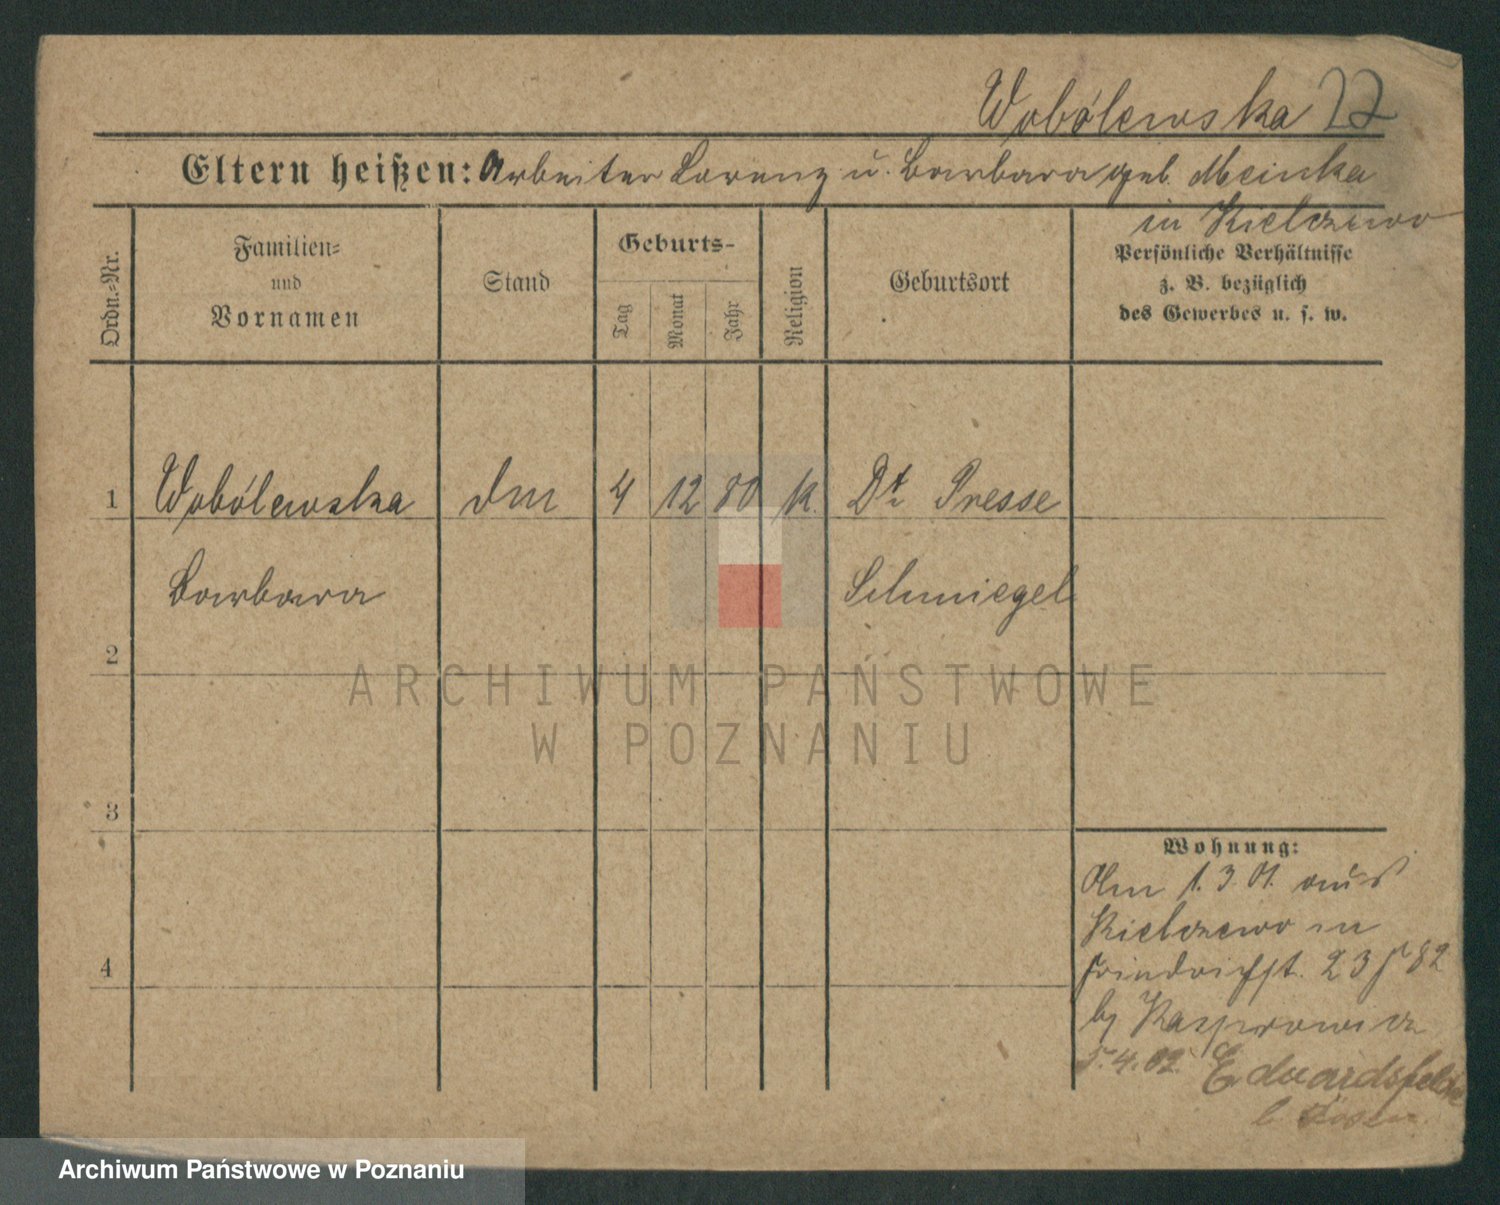 Wobólewska 22
Eltern heißen: Arbeiter Lorenz u. Barbara geb. Meinka
in Kielczewo
Ordn.=Nr.
Familien=
und
Vornamen
Stand
Geburts-
Tag
Monat
Jahr
Religion
Geburtsort
Persönliche Verhältnisse
z. B. bezüglich
des Gewerbes u. s. w.
1 Wobólewska Dm 4 12 80 k. Dt Presse
Barbara Schmiegel
2
ARCHIWUM PAŃSTWOWE
W POZNANIU
3
Wohnung:
Am 1.3.01. aus
Kielczewo in
4
Friedrichst. 23 82
by Kasprowicz
5.4.02. Eduardsfelde
b Posen
Archiwum Państwowe w Poznaniu